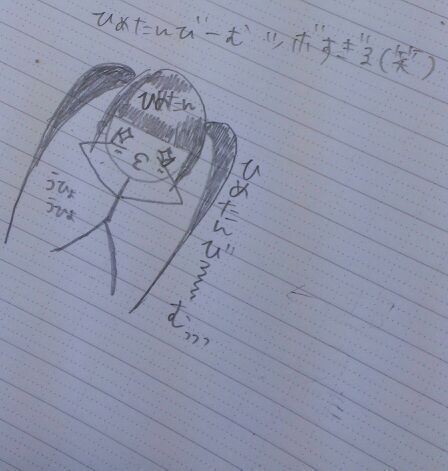 ひめたんびーむ ツボすぎる(笑)
ひめたん
うひょ
うひょ
ひめたんび〰〰むっっっ